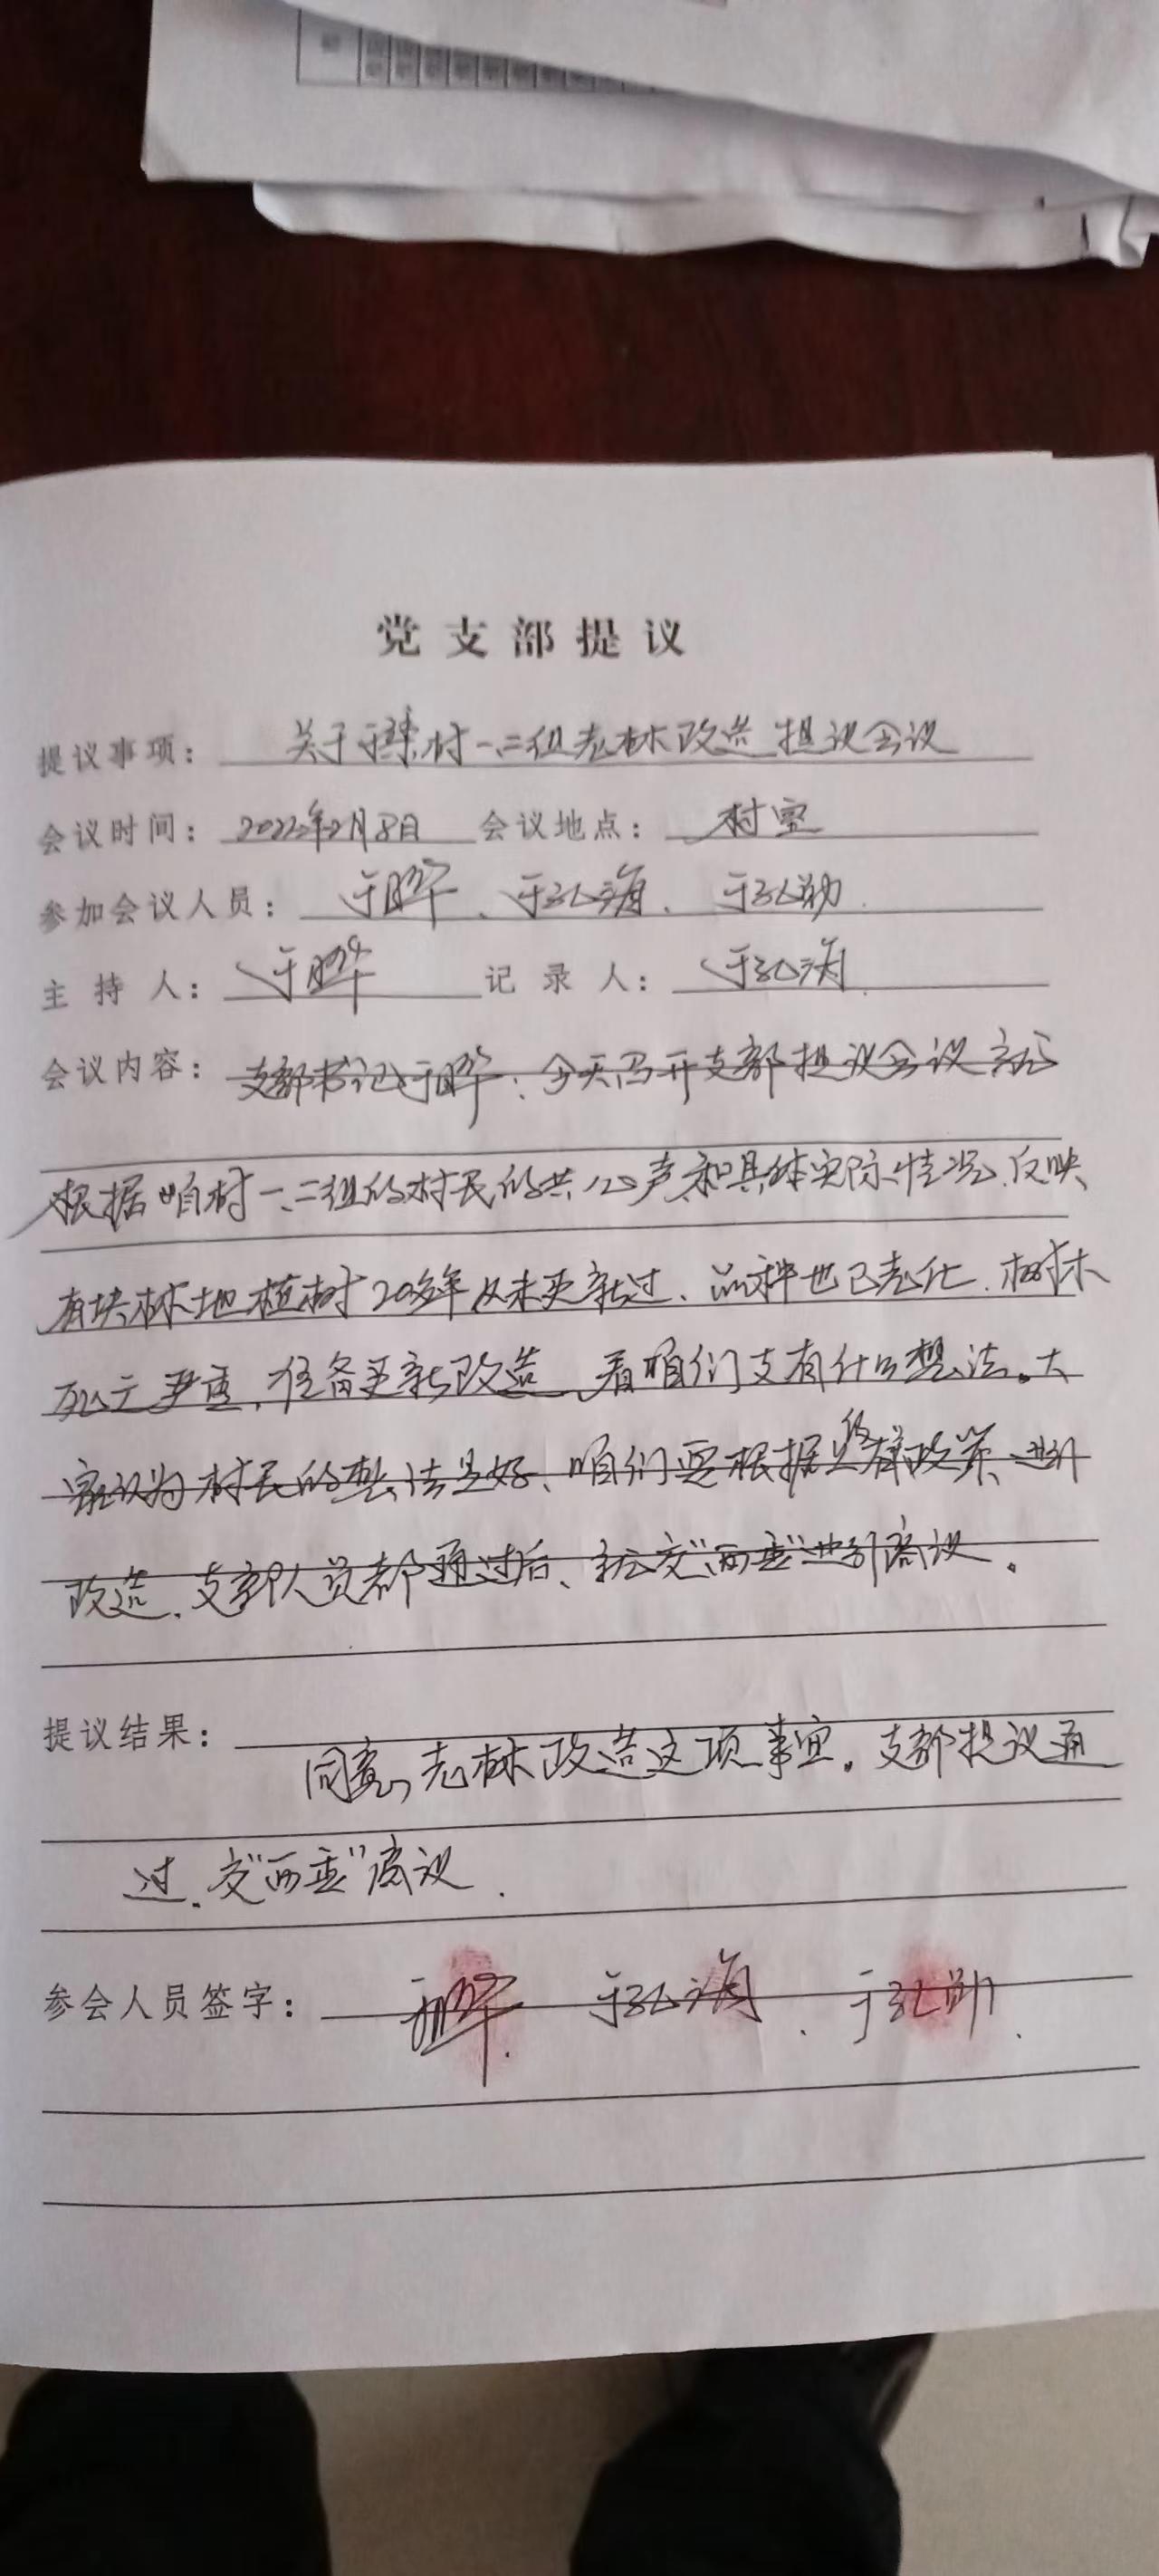 党支部提议
提议事项： 关于 村一二组老林改造提议会议
会议时间： 2022年2月8日 会议地点： 村室
参加会议人员： 于晔、于弘海、于弘勋
主持人： 于晔 记录人： 于弘海
会议内容： 支部书记于晔：今天召开支部提议会议
根据咱村一、二组的村民的共心声和具体实际情况，反映
有块林地植树20多年从未更新过、品种也已老化、树木
死亡严重，准备更新改造，看咱们支有什么想法。大
家认为村民的想法是好、咱们要根据 政策、进行
改造，支部人员都通过后、 交“两委”进行商议。
提议结果：
同意，老林改造这项事宜。支部提议通
过，交“两委”商议.
参会人员签字： 于晔. 于弘海. 于弘勋.